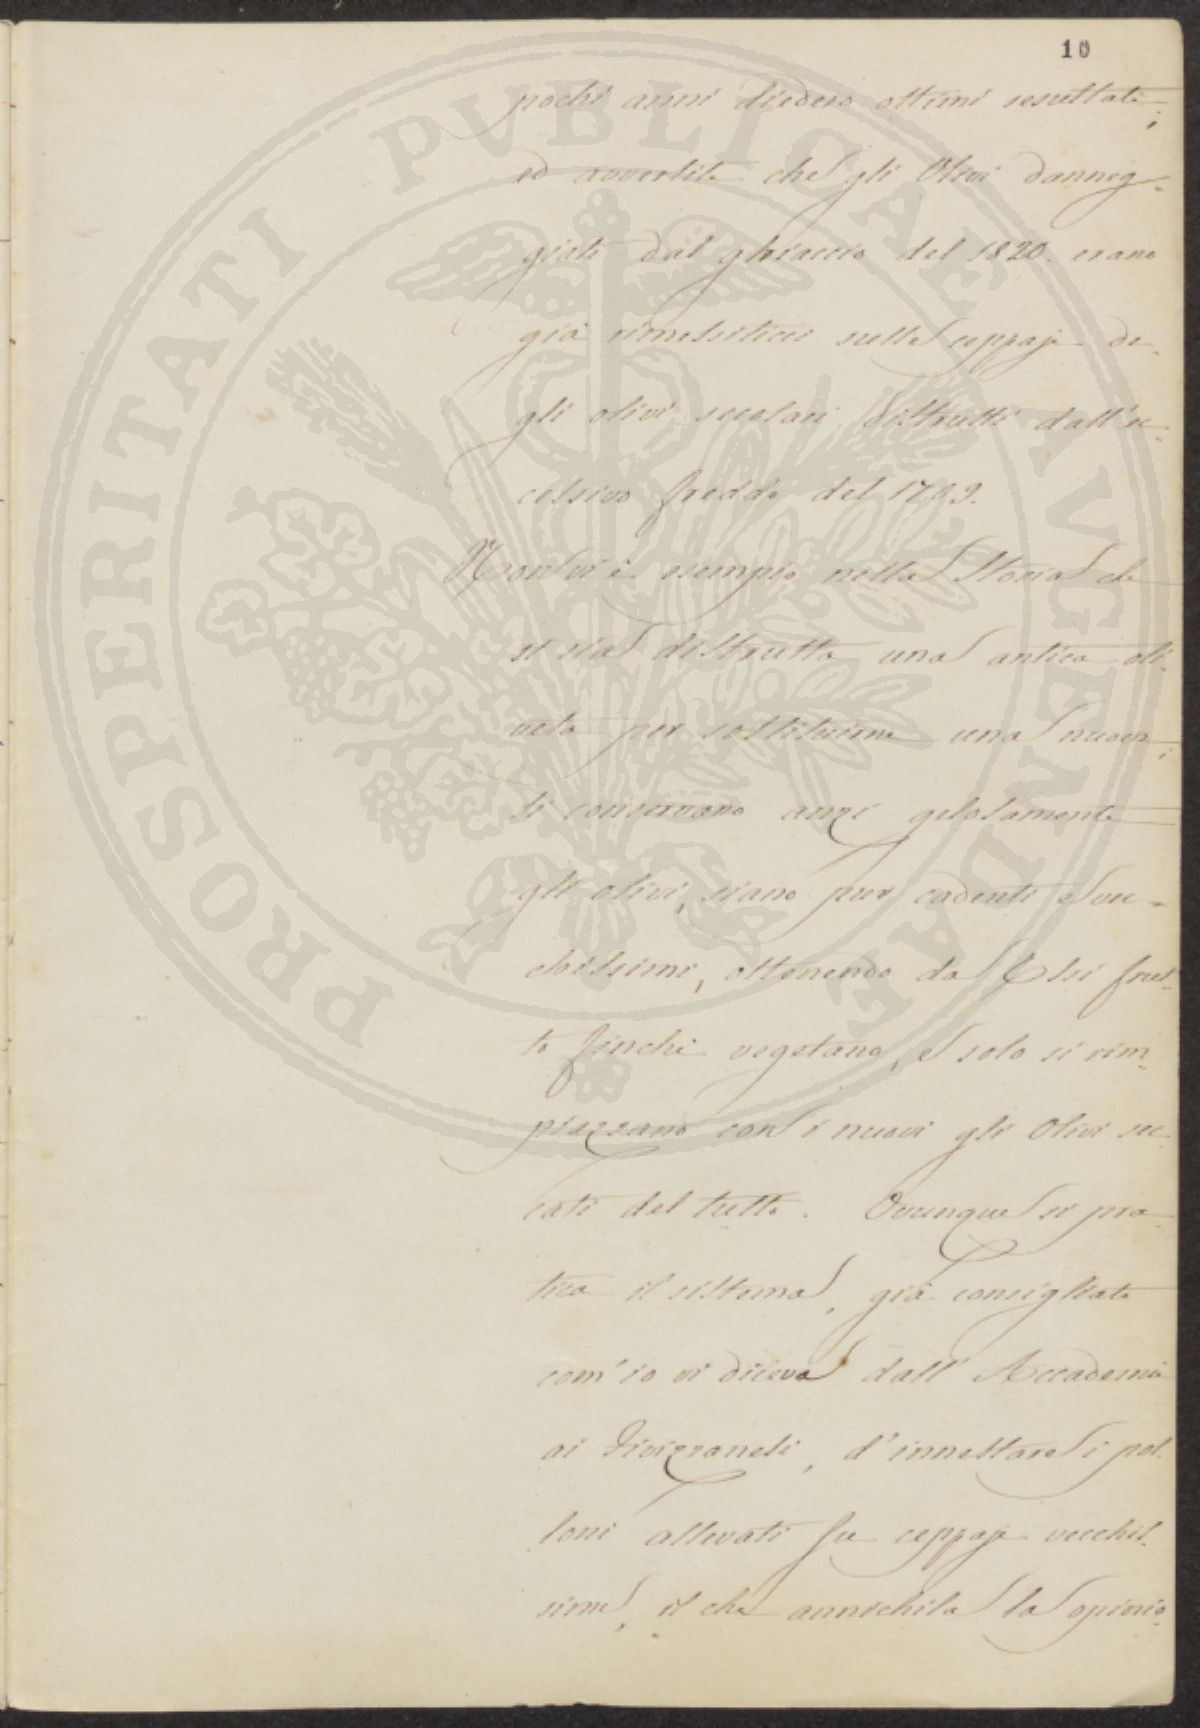 10
pochi anni diedero ottimi resultati;
ed avvertite che gli Olivi danneg-
giati dal ghiaccio del 1820. erano
già rimessiticci sulle ceppaje de-
gli olivi secolari distrutti dall'ec-
cessivo freddo del 1709.
Non vi è esempio nella Storia che
si sia distrutta una antica oli-
veta per sostituirne una nuova;
si conservano anzi gelosamente
gli olivi, siano pur cadenti e vec-
chissimi, ottenendo da Essi frut-
to finchè vegetano, e solo si rim-
piazzano con i nuovi gli Olivi sec-
cati del tutto. Ovunque si pra-
tica il sistema, già consigliato
com'io vi diceva dall'Accademia
ai Fivizzanesi, d'innestare i pol-
loni allevati su ceppaje vecchis-
sime, il che annichila la opinio-
PROSPERITATI PVBLICAE AVGENDAE